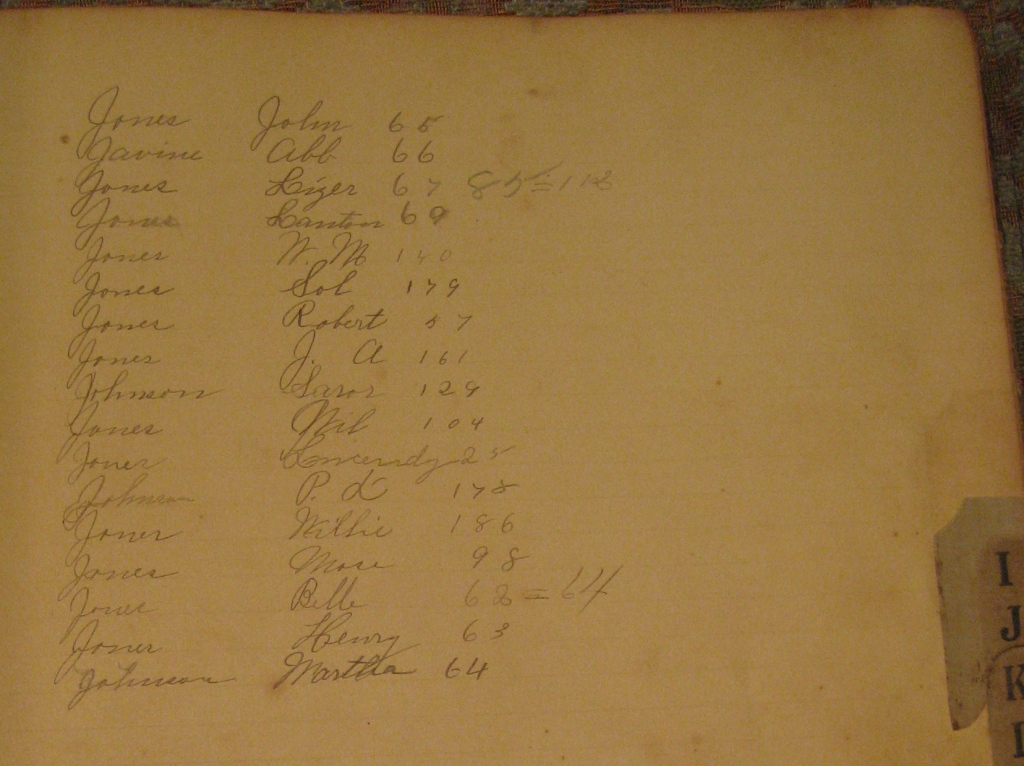 Jones John 65
Javine Abb 66
Jones Lizer 67 85=118
Jones Lanton 69
Jones W. M 140
Jones Sol 179
Jones Robert 57
Jones J. A 161
Johnson Saror 129
Jones Wil 104
Jones 25
Johnson P. L 178
Jones Willie 186
Jones Mose 98
Jones Belle 62=64
Jones Henry 63
Johnson Martha 64
I
J
K
L